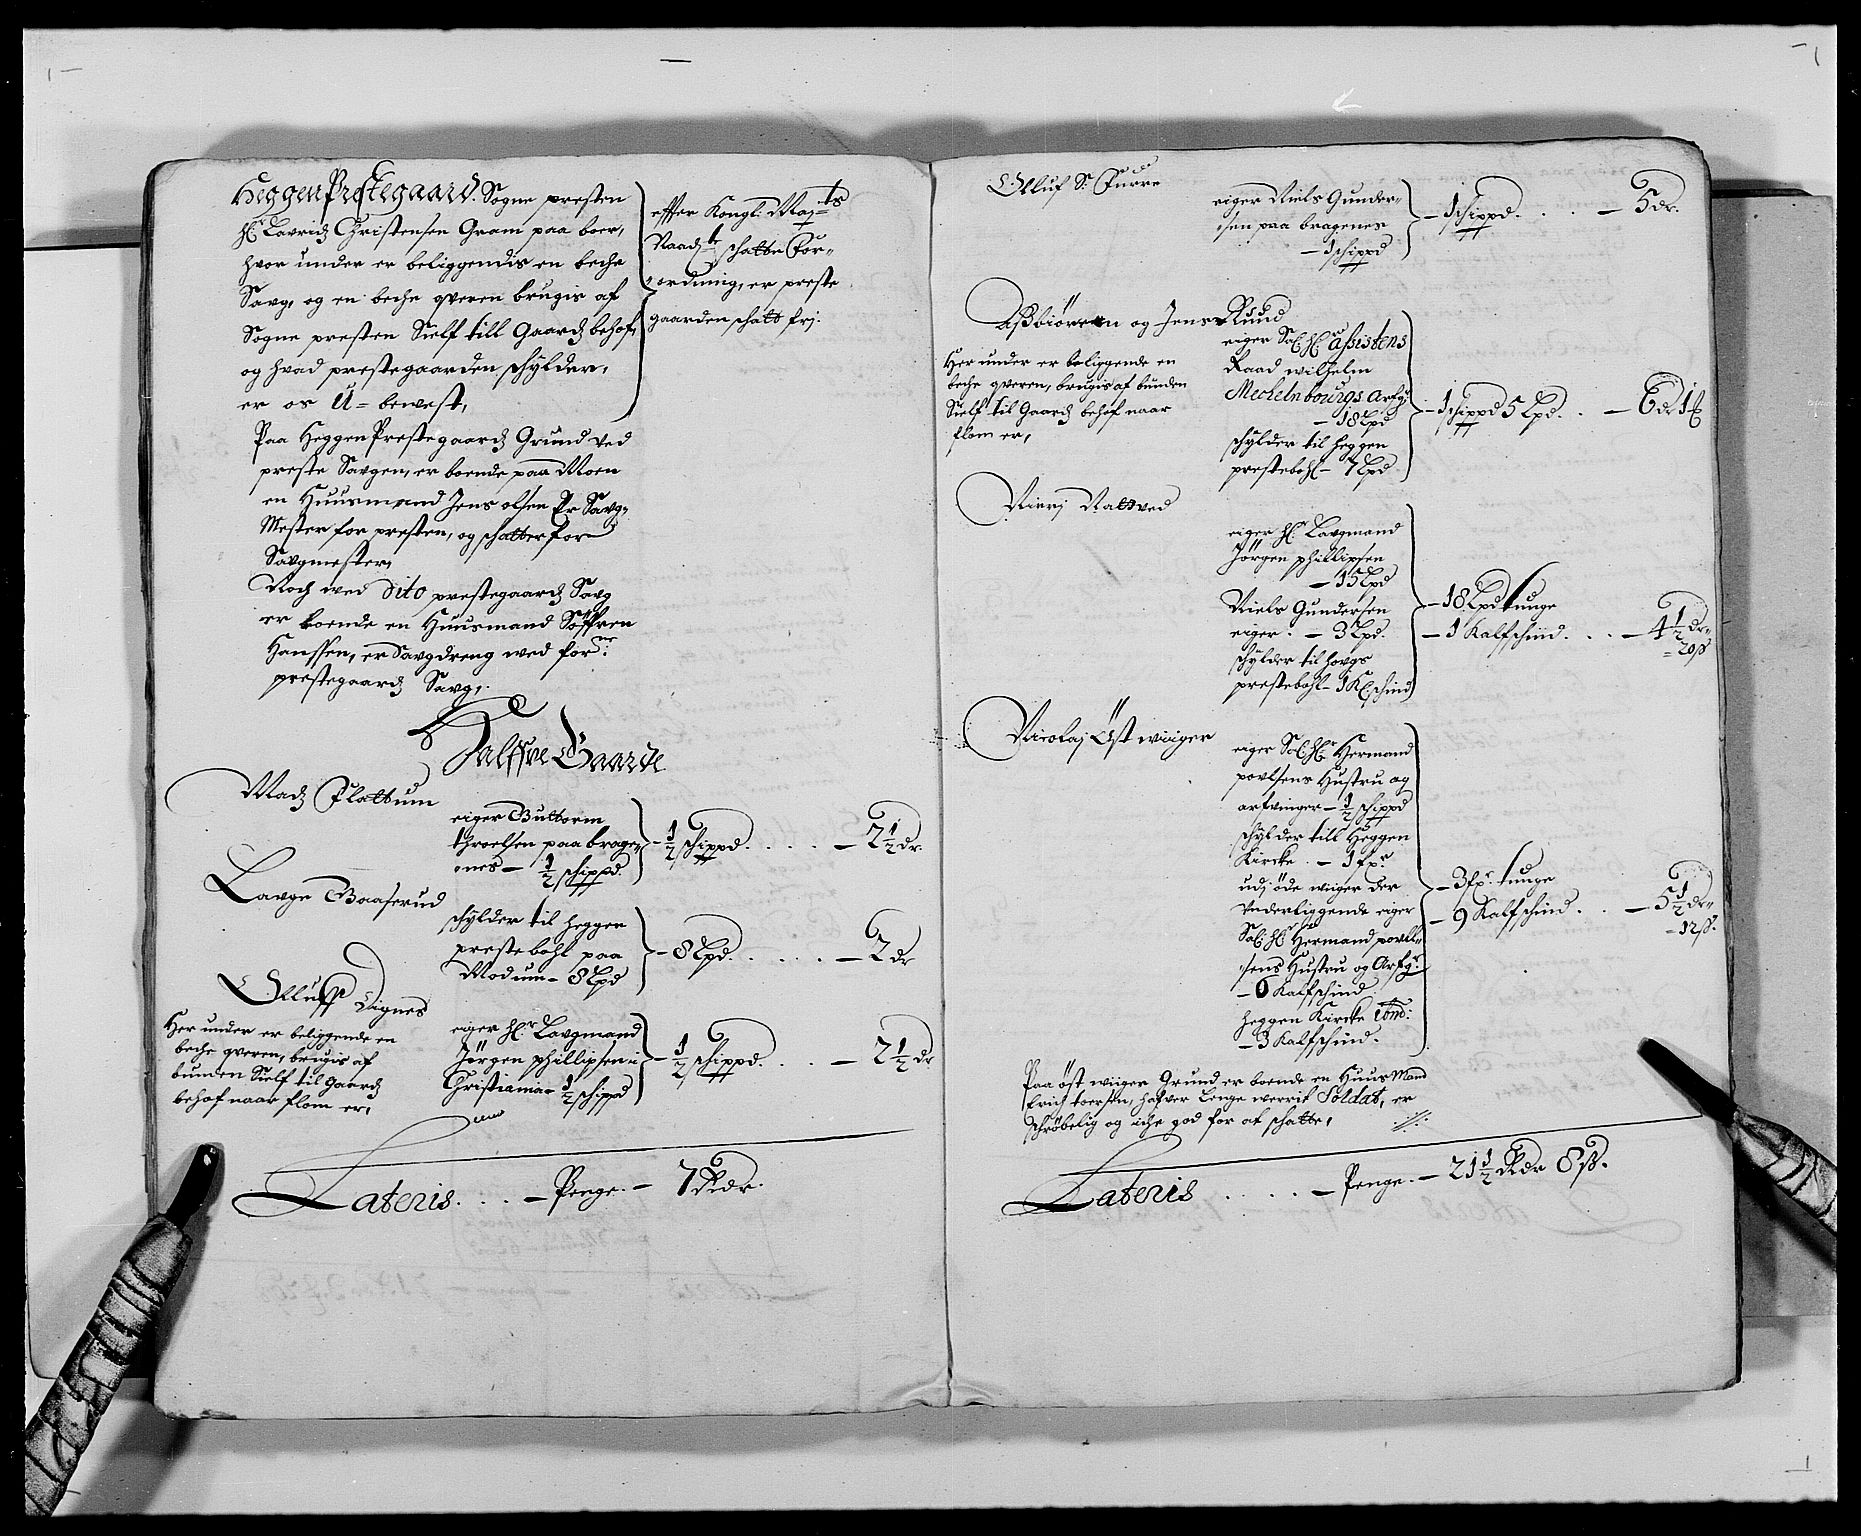 Heggen Prestegaard. Sogne presten
hr. Lavridz Christensen Gram paa boer,
hvor under er beliggendis en beche
Saug, og en beche qveren brugis af
Sogne presten Sielf till Gaardz behof,
og hvad prestegaarden schylder,
er os U-bewest,
effter Kongl: Maj:ts
Naadste schatte For-
ordning, er preste
gaarden schatt frj.
Paa Heggen Prestegaardz Grund ved
preste Saugen, er boende paa Moen
en Huusmand Jens olsen Er Saug-
Mester for presten, og schatter for
Saugmester,
Noch wed dito prestegaardz Saug
er boende en Huusmand Söffren
Hanssen, er Saugdreng wed for:ne
prestegaardz Saug,
Halfve Gaarde
Madz Flattum
eiger Guttorm
throelsen paa brage-
nes - 1/2 schippd.
- 1/2 schippd. . . . . - 2 1/2 dr.
Lauge Baaserud
schylder til heggen
prestebohl paa
Modum - 8 Lpd
- 8 Lpd. . . . . - 2 dr
Olluff Vignes
Her under er beliggende en
beche qveren, brugis af
bunden Sielf til Gaardz
behof naar flom er,
eiger hr. Laugmand
Jörgen phillipsen i
Christiania - 1/2 schippd
- 1/2 schippd. . . . - 2 1/2 dr
Lateris. . . . - Penge. - 7 Rdr.
Olluf Sr Furre
eiger Niels Gunder-
sen paa bragenes
- 1 schippd
- 1 schippd. . . . - 5 dr.
Assbiören og Jens Ruud
Her under er beliggende en
beche qveren, brugis af bunden
Sielf til Gaardz behof naar
flom er,
eiger Sal. hr. Assistens
Raad wilhelm
Mechelnbourgs arfg:
- 18 Lpd
schylder til heggen
prestebohl - 7 Lpd
- 1 schippd 5 Lpd. . . - 6 dr 1
Nattved
eiger hr. Laugmand
Jörgen phillipsen
- 15 Lpd
Niels Gundersen
eiger. - 3 Lpd.
schylder til hougs
prestebohl - 1 K: schind
- 18 Lpd tunge
- 1 Kalfschind. . . . - 4 1/2 dr-
- 20 ß
Nicolaj Öst wiiger
eiger Sal. hr. Hermand
povlsens Hustru og
arfvinger - 1/2 schippd
schylder till Heggen
Kircke. - 1 fxr
udj öde wiiger der
Vnderliggende eiger
Sal. hr. Hermand povel-
sens Hustru og Arfgr
- 6 Kalfschind
heggen Kircke
- 3 Kalfschind.
- 3 fxr. tunge
- 9 Kalfschind. . . - 5 1/2 dr-
- 12 ß.
Paa öst wiiger Grund er boende en Huus Mand
Erich toersen, hafver Lenge werrit Soldat, er
schröbelig og iche god for at schatte,
Lateris . . . . . - Penge. - 21 1/2 Rdr 8 ß.